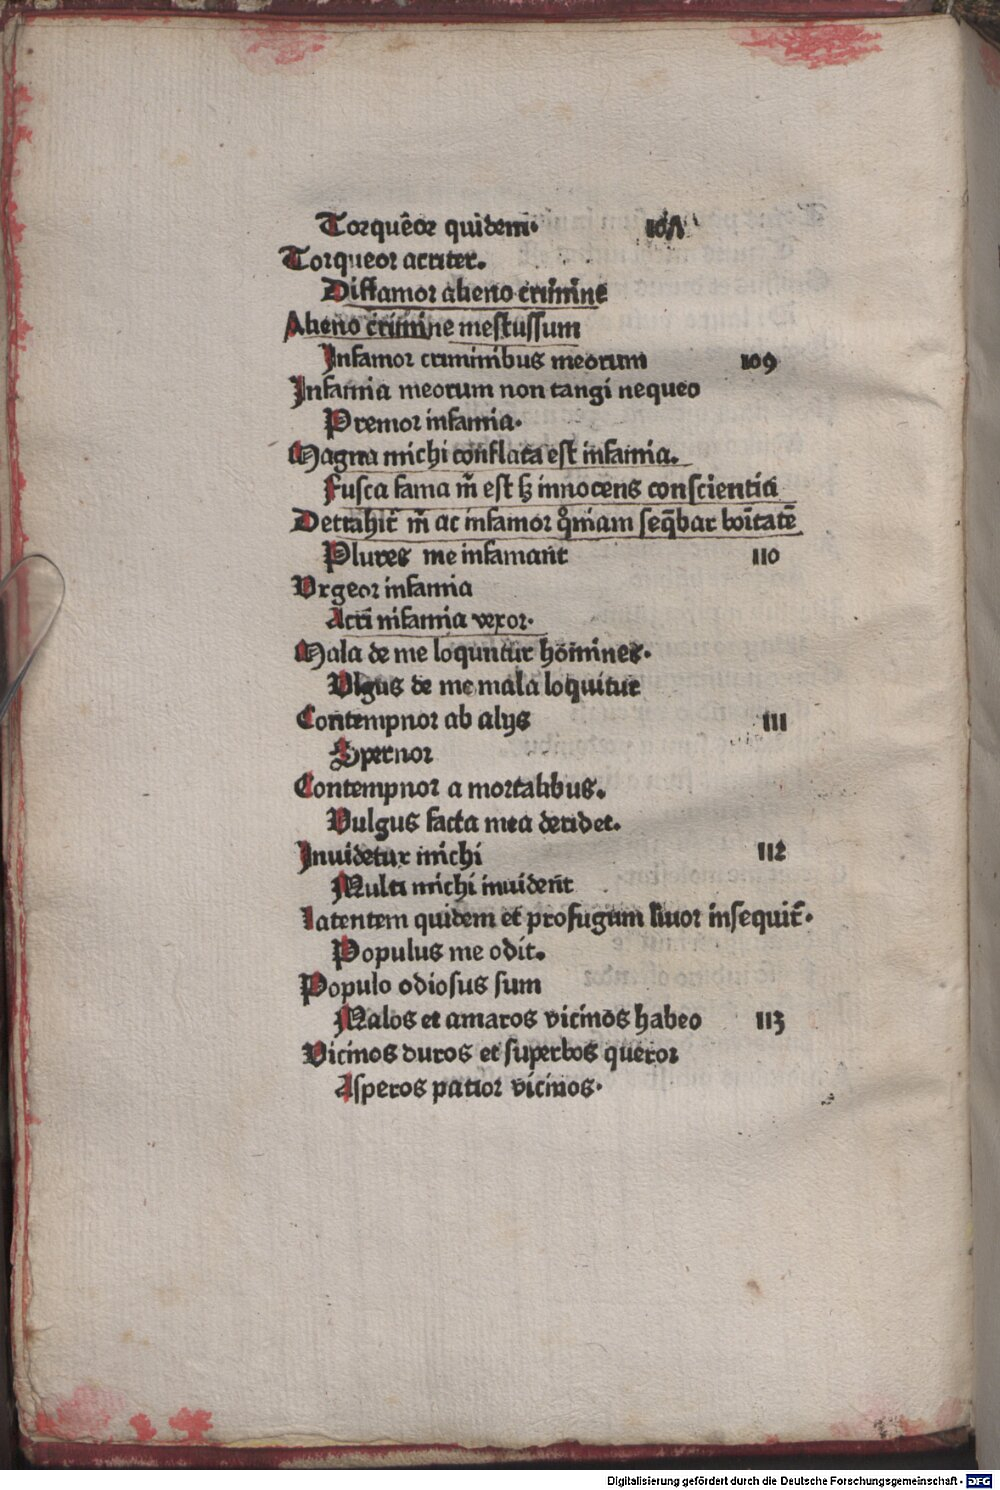 Torqueor quidem̄.
Torqueor acriter.
Diffamor alieno crimine
Alieno crimine mestussum
Infamor criminibus meorum 109
Infamia meorum non tangi nequeo
Premor infamia.
Magna michi conflata est infamia.
Fusca fama m̄ est ʒ innocens conscientia
Detrahit᷑ m̄ ac infamor qm̄iam seq̄bar boitatē
Plures me infamant 110
Vrgeor infamia
Acri infamia vexor.
Mala de me loquntur homines.
Vlgus de me mala loquitur
Contempnor ab alijs 111
Spernor
Contempnor a mortalibus.
Vulgus facta mea deridet.
Inuidetur michi 112
Multi michi inuident
latentem quidem et profugum liuor insequit᷑.
Populus me odit.
Populo odiosus sum
Malos et amaros vicinos habeo 113
Vicinos duros et superbos queror
Asperos patior vicinos.
Digitalisierung gefördert durch die Deutsche Forschungsgemeinschaft - DFG